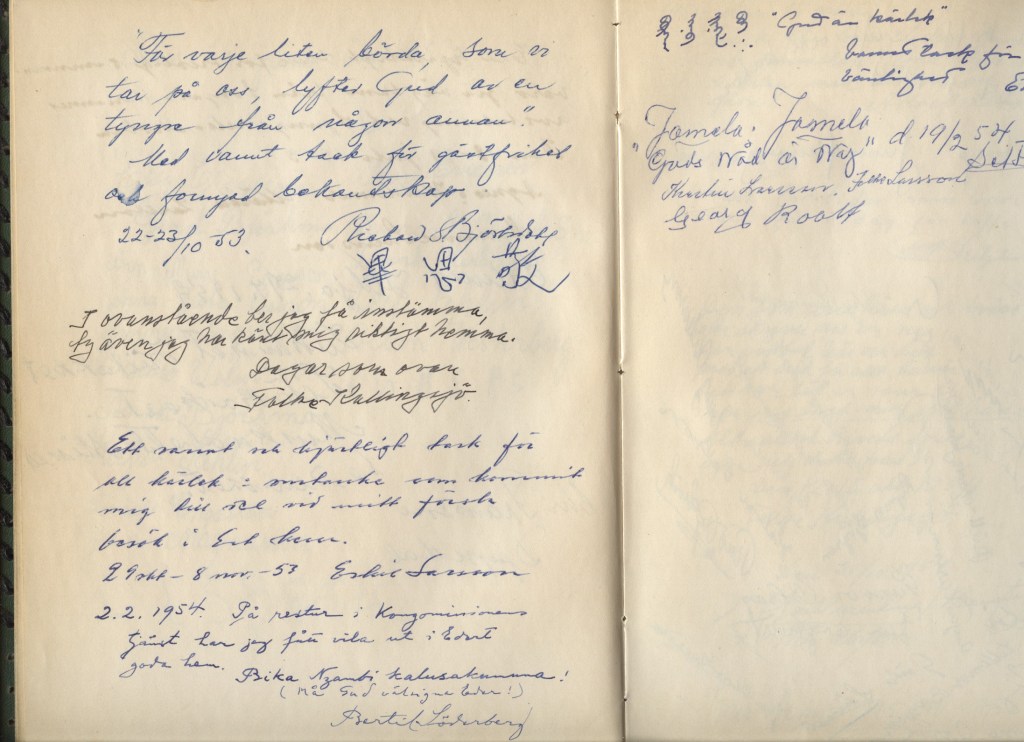 "För varje liten börda, som vi
tar på oss, lyfter Gud av en
tyngre från någon annan".
Med varmt tack för gästfrihet
och förnyad bekantskap
22-23/10 53. Richard Björkdahl
畢 恩 敬
I ovanstående ber jag få instämma,
ty även jag har känt mig riktigt hemma.
Dagar som ovan
Folke Kallingsjö.
Ett varmt och hjärtligt tack för
all kärlek o omtanke som kommit
mig till del vid mitt första
besök i Ert hem.
29 okt - 8 nov. -53 Larsson
2.2.1954. På restur i Kongomissionens
tjänst har jag fått vila ut i Edert
goda hem. Bika Nzambi kalusakumuna!
(Må Gud välsigna Eder!)
Bertil Söderberg
"Gud är kärlek"
tack för
vänlighet
Jamela. Jamela
"Guds Nåd är Ny" d 19/2 54.
Kerstin Larsson. Folke Larsson
Georg Roalf